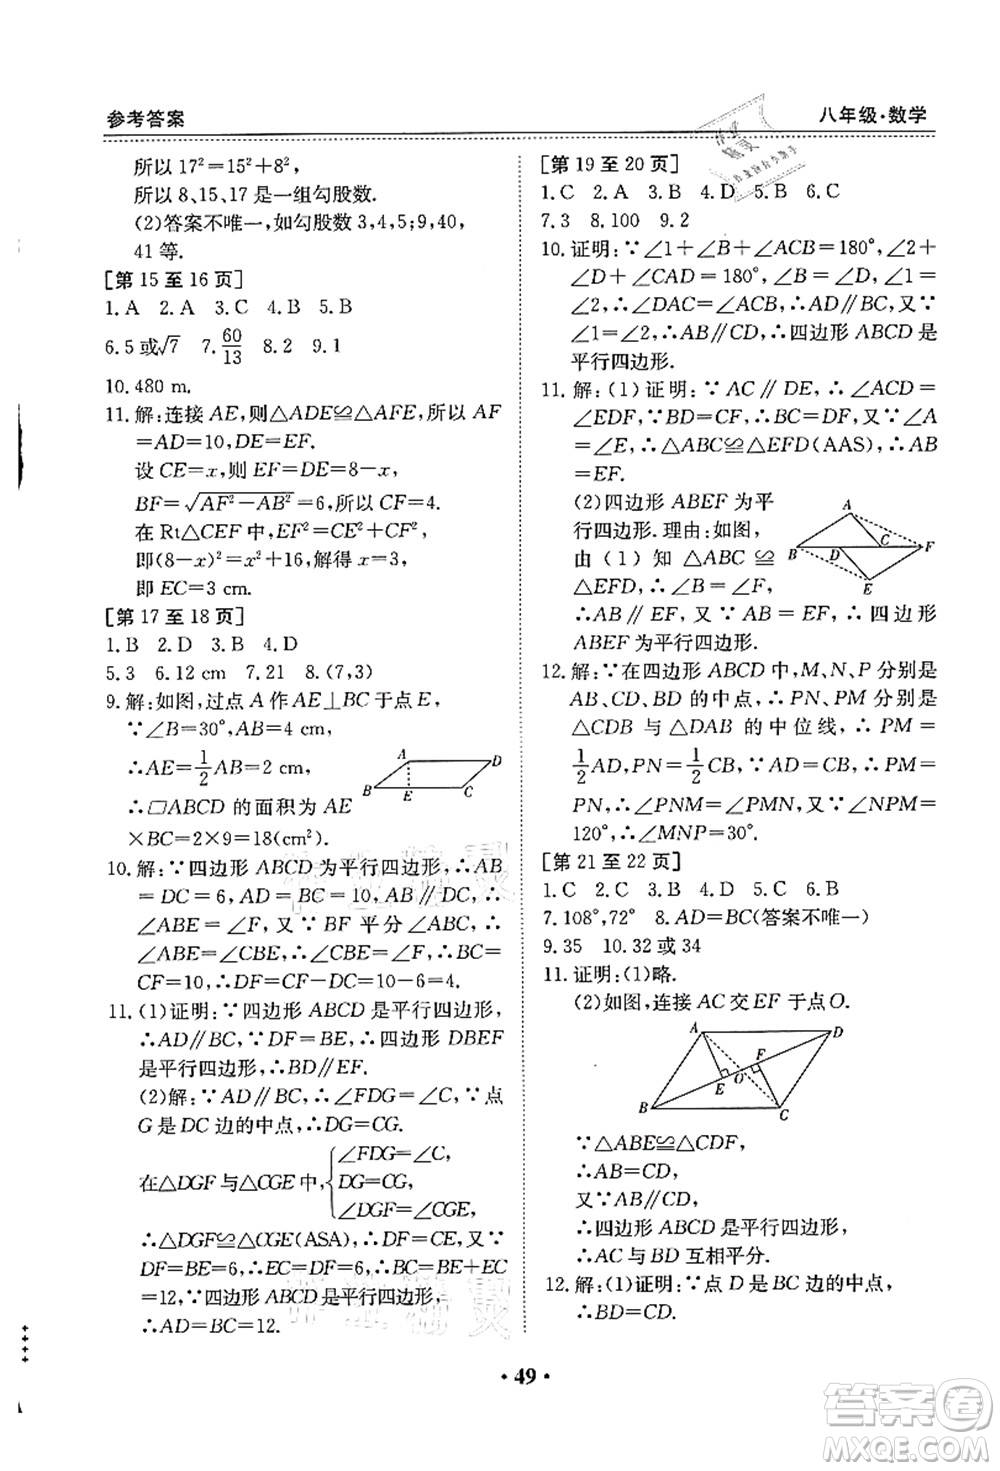 参考答案
八年级·数学
所以 17²=15²+8²,
所以 8、15、17 是一组勾股数.
(2)答案不唯一,如勾股数 3,4,5;9,40,
41 等.
[第 15 至 16 页]
1. A 2. A 3. C 4. B 5. B
6. 5 或√7 7. 60/13 8. 2 9. 1
10. 480 m.
11. 解:连接 AE,则△ADE≌△AFE,所以 AF
=AD=10,DE=EF.
设 CE=x,则 EF=DE=8-x,
BF=√(AF²-AB²)=6,所以 CF=4.
在 Rt△CEF 中,EF²=CE²+CF²,
即(8-x)²=x²+16,解得 x=3,
即 EC=3 cm.
[第 17 至 18 页]
1. B 2. D 3. B 4. D
5. 3 6. 12 cm 7. 21 8. (7,3)
9. 解:如图,过点 A 作 AE⊥BC 于点 E,
∵∠B=30°,AB=4 cm,
∴AE=1/2AB=2 cm,
∴▱ABCD 的面积为 AE
×BC=2×9=18(cm²).
A D B E C
10. 解:∵四边形 ABCD 为平行四边形,∴AB
=DC=6,AD=BC=10,AB∥DC,∴
∠ABE=∠F,又∵ BF 平分∠ABC,∴
∠ABE=∠CBE,∴∠CBE=∠F,∴BC=
CF=10,∴DF=CF-DC=10-6=4.
11. (1)证明:∵四边形 ABCD 是平行四边形,
∴AD∥BC,∵DF=BE,∴四边形 DBEF
是平行四边形,∴BD∥EF.
(2)解:∵AD∥BC,∴∠FDG=∠C,∵点
G 是 DC 边的中点,∴DG=CG.
在△DGF 与△CGE 中,{∠FDG=∠C,
DG=CG,
∠DGF=∠CGE,
∴△DGF≌△CGE(ASA),∴DF=CE,又∵
DF=BE=6,∴CE=6,∴BC=BE+CE=
12,∵四边形 ABCD 是平行四边形,
∴AD=BC=12.
[第 19 至 20 页]
1. C 2. A 3. B 4. D 5. B 6. C
7. 3 8. 100 9. 2
10. 证明:∵∠1+∠B+∠ACB=180°,∠2
+∠D+∠CAD=180°,∠B=∠D,∠1=
∠2,∴∠DAC=∠ACB,∴AD∥BC,又∵
∠1=∠2,∴AB∥CD,∴四边形 ABCD 是
平行四边形.
11. 解:(1)证明:∵AC∥DE,∴∠ACD=
∠EDF,∵BD=CF,∴BC=DF,又∵∠A
=∠E,∴△ABC≌△EFD(AAS),∴AB
=EF.
(2)四边形 ABEF 为平
行四边形.理由:如图,
由(1)知△ABC≌
△EFD,∴∠B=∠F,
∴AB∥EF,又∵AB=EF,∴四边形
ABEF 为平行四边形.
A B D C F E
12. 解:∵在四边形 ABCD 中,M、N、P 分别是
AB、CD、BD 的中点,∴PN、PM 分别是
△CDB 与△DAB 的中位线,∴PM=
1/2AD,PN=1/2BC,∵AD=BC,∴PM=
PN,∴∠PNM=∠PMN,又∵∠MPN=
120°,∴∠MNP=30°.
[第 21 至 22 页]
1. C 2. C 3. B 4. D 5. A 6. B
7. 108°,72° 8. AD=BC(答案不唯一)
9. 35 10. 32 或 34
11. 证明:(1)略.
(2)如图,连接 AC 交 EF 于点 O.
A D F E O B C
∵△ABE≌△CDF,
∴AB=CD,
又∵AB∥CD,
∴四边形 ABCD 是平行四边形,
∴AC 与 BD 互相平分.
12. 解:(1)证明:∵点 D 是 BC 边的中点,
∴BD=CD.
· 49 ·
答案圈
MXQE.COM